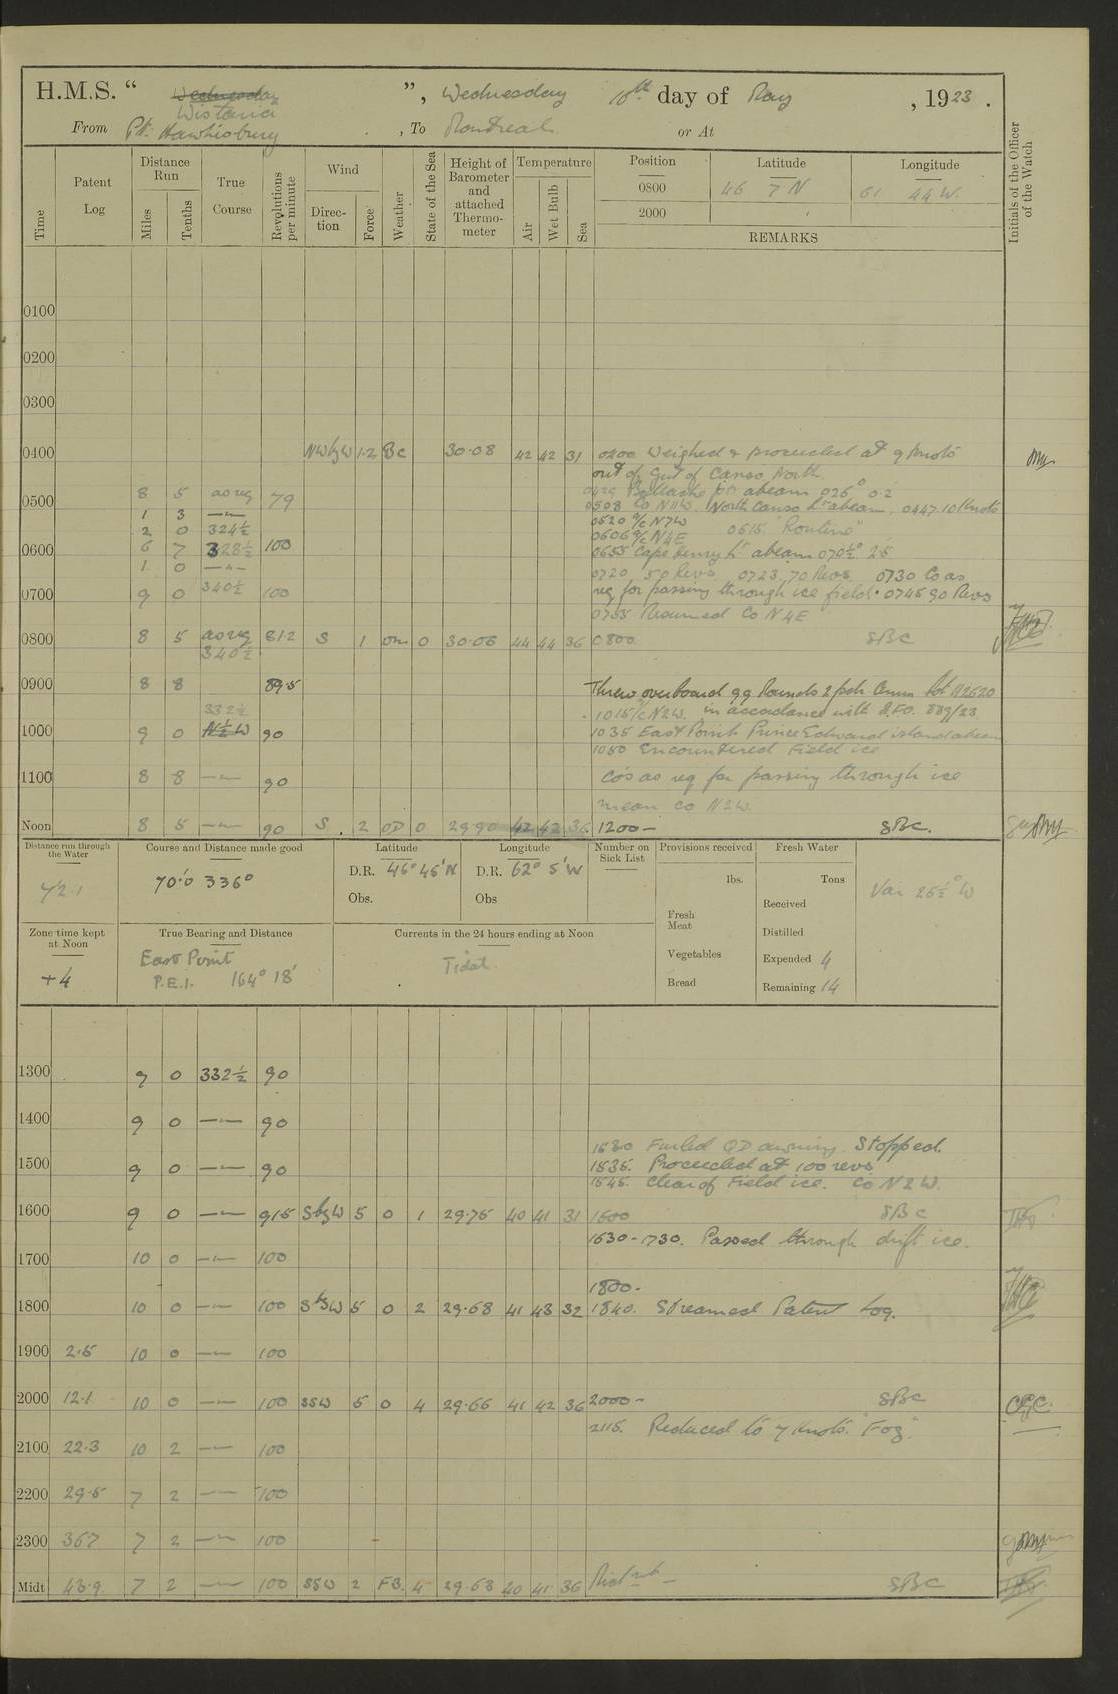 H.M.S. " Wednesday ", Wednesday 16th day of May, 1923.
Wistaria
From Pt. Hawkesbury, To Montreal or At
Time
Patent Log
Distance Run
Miles
Tenths
True Course
Revolutions per minute
Wind
Direction
Force
Weather
State of the Sea
Height of Barometer and attached Thermometer
Temperature
Air
Wet Bulb
Sea
Position Latitude Longitude
0800 46 7 N 61 44 W.
2000
REMARKS
Initials of the Officer of the Watch
0100
0200
0300
0400 NWbyW 1.2 Bc 30.08 42 42 31 0400 Weighed & proceeded at 9 knots
out of Gut of Canso North
abeam 026° 0.2
0500 8 5 as req 79
0508 Co N11W. North Canso Lt abeam. 0447.10 Knots
1 3 —"—
0520 a/c N7W
2 0 324½ 0606 a/c N4E 0615 "Routine"
0600 6 7 328½ 100 0655 Cape Henry Lt abeam 070½° 2.5
1 0 —"—
0720 50 Revs 0723 70 Revs 0730 Co as
0700 9 0 340½ 100 req for passing through ice field. 0745 90 Revs
0755 Resumed Co N4E
0800 8 5 as req 81.2 S 1 om 0 30.06 44 44 36 0800. SBC
340½
0900 8 8 89.5 Threw overboard 99 Rounds 2 pdr Amm Lot
in accordance with A.F.O. 889/23
332½ 1015 a/c N2W.
1000 9 0 N½W 90 1035 East Point Prince Edward island abeam
1050 Encountered Field ice
1100 8 8 —"— 90 Co's as req for passing through ice
mean co N2W.
Noon 8 5 —"— 90 S. 2 OD 0 29.90 42 42 36 1200— SBC.
Distance run through the Water
72.1
Course and Distance made good
70.'0 336°
Latitude
D.R. 46° 45'N
Obs.
Longitude
D.R. 62° 5'W
Obs
Number on Sick List
Provisions received
lbs.
Fresh Meat
Vegetables
Bread
Fresh Water
Tons
Received
Distilled
Expended 4
Remaining 14
Var 25½° W
Zone time kept at Noon
+4
True Bearing and Distance
East Point
P.E.I. 164° 18'
Currents in the 24 hours ending at Noon
Tidal
1300 9 0 332½ 90
1400 9 0 —"— 90
1530 Furled QD awning. Stopped.
1500 9 0 —"— 90 1535. Proceeded at 100 revs
1545. Clear of Field ice. Co N2W.
1600 9 0 —"— 91.5 SbyW 5 0 1 29.75 40 41 31 1600 SBC
1630-1730. Passed through drift ice.
1700 10 0 —"— 100
1800-
1800 10 0 —"— 100 SbyW 5 0 2 29.68 41 43 32 1840. Streamed Patent Log.
1900 2.5 10 0 —"— 100
2000 12.1 10 0 —"— 100 SSW 5 0 4 29.66 41 42 36 2000— SBC
2115. Reduced to 7 knots. "Fog".
2100 22.3 10 2 —"— 100
2200 29.5 7 2 —"— 100
2300 36.7 7 2 —"— 100
Midt 43.9. 7 2 —"— 100 SSW 2 FB. 4 29.63 40 41 36 SBC